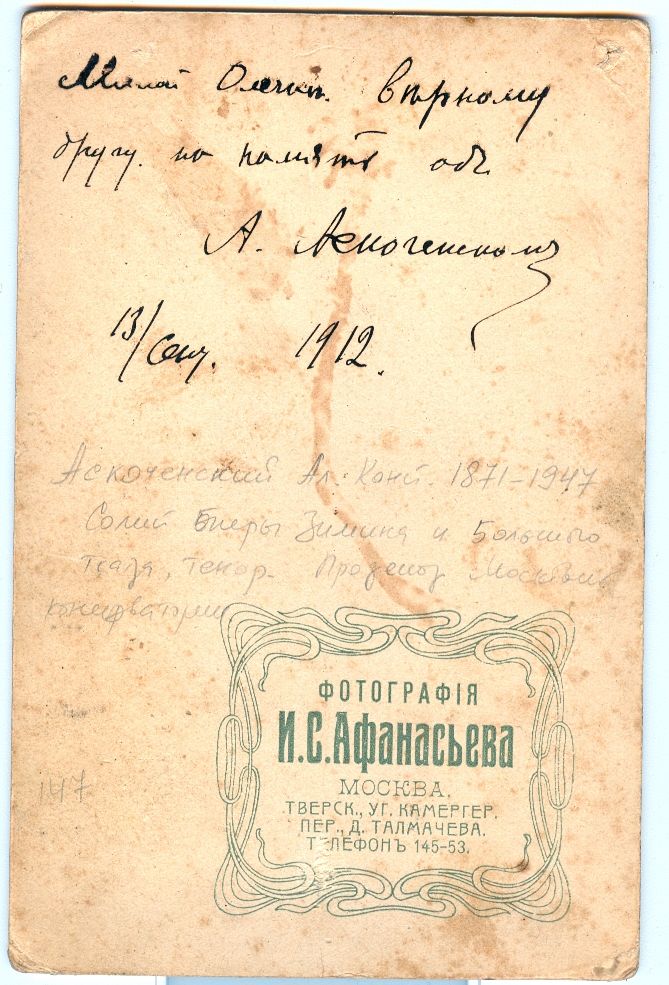 Милой Олечкѣ. вѣрному
другу. на память отъ
А. Аскоченскомъ
13/Сент. 1912.
Аскоченский Ал. Конст. 1871-1947
Солист Оперы Зимина и Большого
театра, тенор. Московской
консерватории
147
ФОТОГРАФІЯ
И.С.Афанасьева
МОСКВА.
ТВЕРСК., УГ. КАМЕРГЕР.
ПЕР., Д. ТАЛМАЧЕВА.
ТЕЛЕФОНЪ 145-53.